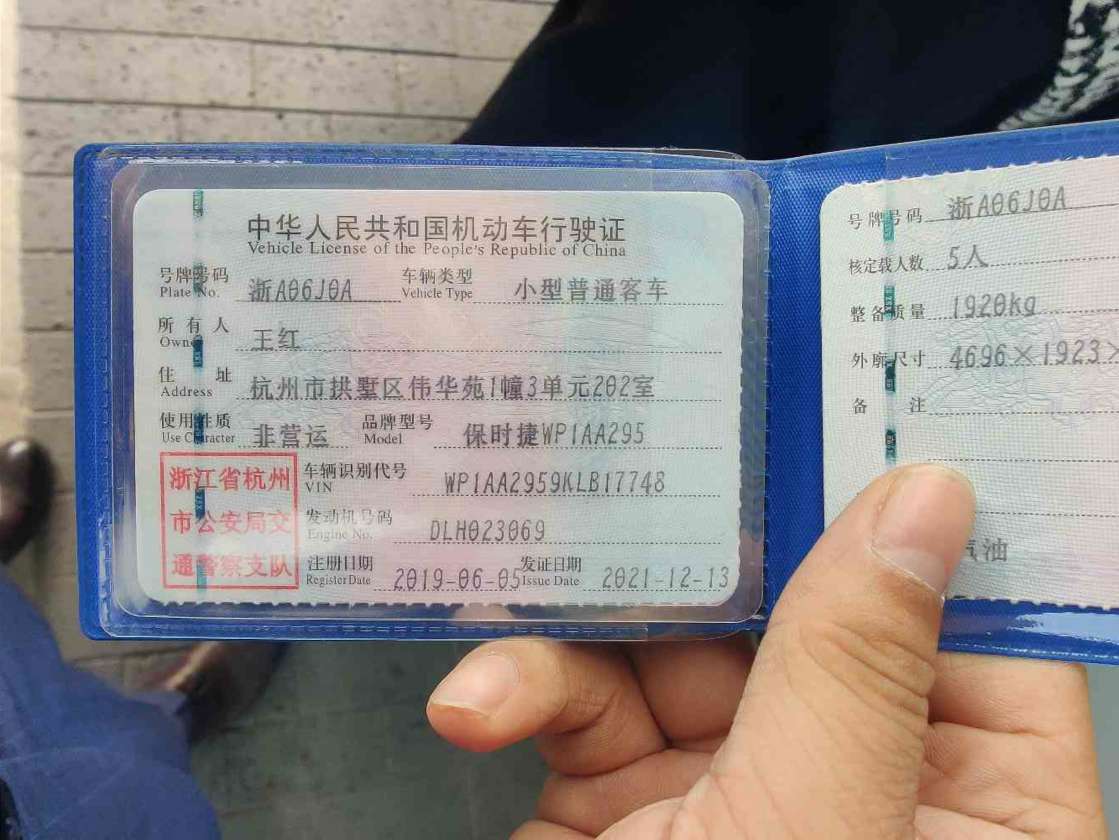 中华人民共和国机动车行驶证
Vehicle License of the People's Republic of China
号牌号码 浙A06J0A 车辆类型 小型普通客车
Plate No. Vehicle Type
所有人 王红
Owner
住址 杭州市拱墅区伟华苑1幢3单元202室
Address
使用性质 非营运 品牌型号 保时捷WP1AA295
Use Character Model
浙江省杭州
市公安局交
通警察支队
车辆识别代号 WP1AA2959KLB17748
VIN
发动机号码 DLH023069
Engine No.
注册日期 2019-06-05 发证日期 2021-12-13
Register Date Issue Date
号牌号码 浙A06J0A
核定载人数 5人
整备质量 1920kg
外廓尺寸 4696×1923×
备注
汽油